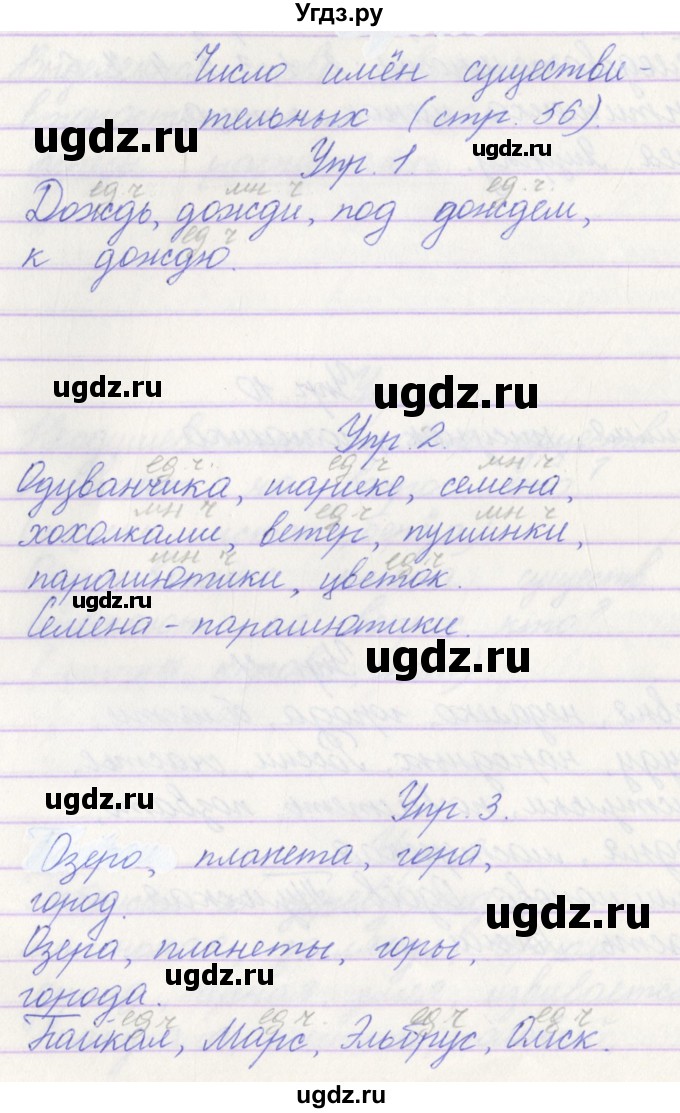 Угдз.ру
Число имён существи-
тельных (стр. 56).
ugdz.ru
ugdz.ru
Упр. 1.
ед. ч. мн ч ед. ч.
Дождь, дожди, под дождем,
ед ч
к дождю.
ugdz.ru
ugdz.ru
Упр. 2.
ед ч. ед ч мн ч
Одуванчика, шарике, семена,
мн ч ед ч мн ч
хохолками, ветер, пушинки,
мн ч ед ч
парашютики, цветок.
ugdz.ru
Семена - парашютики.
ugdz.ru
ugdz.ru
Упр. 3.
Озеро, планета, гора,
город.
ugdz.ru
Озера, планеты, горы,
ugdz.ru
города.
ед ч ед ч. ед ч ед ч
Байкал, Марс, Эльбрус, Омск.
ugdz.ru